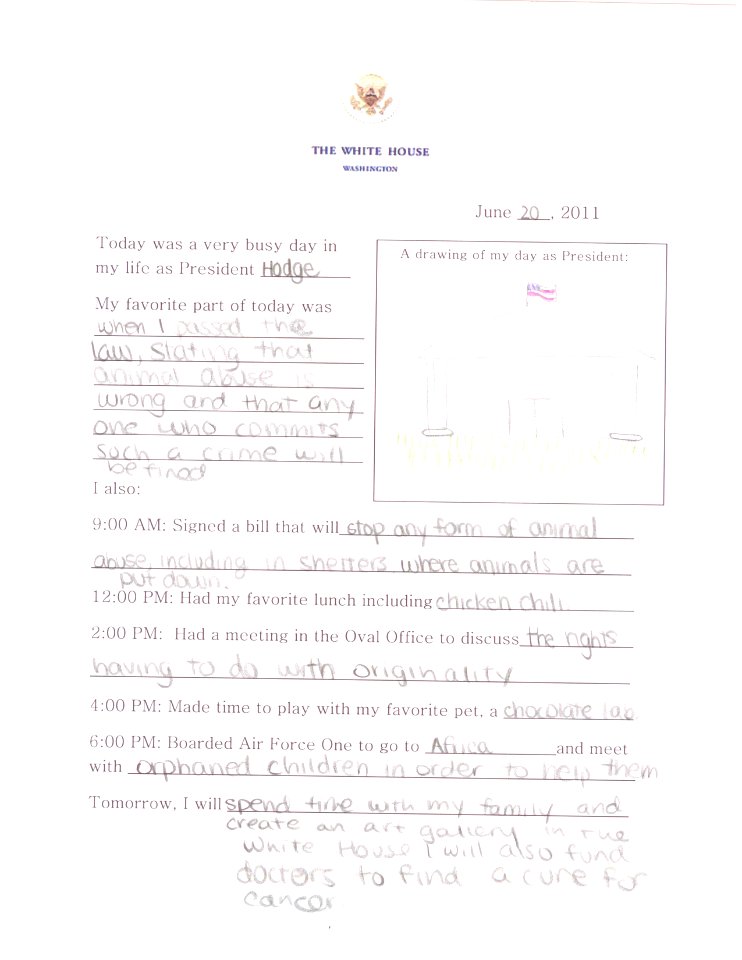 THE WHITE HOUSE
WASHINGTON
June 20, 2011
Today was a very busy day in
my life as President Hodge
My favorite part of today was
when I passed the
law, Stating that
animal abuse is
wrong and that any
one who commits
such a crime will
be fined
A drawing of my day as President:
I also:
9:00 AM: Signed a bill that will stop any form of animal
abuse, including in shelters where animals are
put down.
12:00 PM: Had my favorite lunch including chicken chili
2:00 PM: Had a meeting in the Oval Office to discuss the rights
having to do with originality
4:00 PM: Made time to play with my favorite pet, a chocolate lab
6:00 PM: Boarded Air Force One to go to Africa and meet
with orphaned children in order to help them
Tomorrow, I will spend time with my family and
create an art gallery in the
White House I will also fund
doctors to find a cure for
cancer